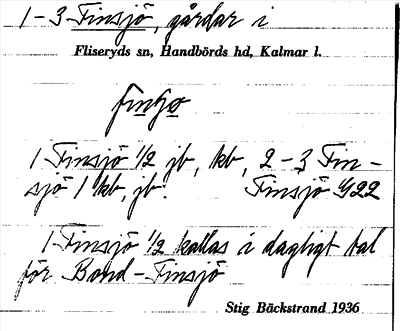 1-3 Finsjö, gårdar i
Fliseryds sn, Handbörds hd, Kalmar l.
1 Finsjö 1/2 jb, kb, 2-3 Fin-
sjö 1 kb, jb. Finsjö G22
1 Finsjö 1/2 kallas i dagligt tal
för Bond-Finsjö
Stig Bäckstrand 1936